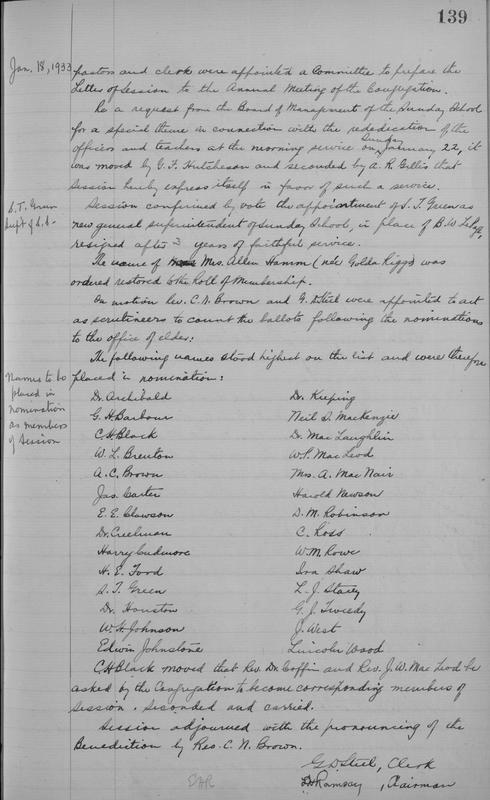 139
Jan. 18, 1933
pastors and clerk were appointed a Committee to prepare the
Letter of Session to the Annual Meeting of the Congregation.
Re a request from the Board of Management of the Sunday School
for a special theme in connection with the rededication of the
officers and teachers at the morning service on Sunday January 22, it
was moved by G. F. Hutcheson and seconded by A. R. Gillis that
Session hereby express itself in favor of such a service.
S. T. Green
Supt of S. S.
Session confirmed by vote the appointment of S. T. Green as
new general superintendent of Sunday School, in place of B. W. LePage,
resigned after 3 years of faithful service.
The name of Mrs. Allen Hamm (neé Golda Riggs) was
ordered restored to the Roll of Membership.
On motion Rev. C. N. Brown and G. D. Steel were appointed to act
as scrutineers to count the ballots following the nominations
to the office of elder:
The following names stood highest on the list and were therefore
placed in nomination:
Names to be
placed in
nomination
as members
of Session
Dr. Archibald
G. H. Barbour
C. H. Black
W. L. Brenton
A. C. Brown
Jas. Carter
E. E. Clawson
Dr. Creelman
Harry Cudmore
H. E. Ford
S. T. Green
Dr. Houston
W. H. Johnson
Edwin Johnstone
Dr. Keeping
Neil D. MacKenzie
Dr. MacLaughlin
W. P. MacLeod
Mrs. A. MacNair
Harold Newson
D. M. Robinson
C. Ross
W. M. Rowe
Ira Shaw
L. J. Stacey
G. J. Tweedy
J. West
Lincoln Wood
C. H. Black moved that Rev. Dr. Coffin and Rev. J. W. MacLeod be
asked by the Congregation to become corresponding members of
Session. Seconded and carried.
Session adjourned with the pronouncing of the
Benediction by Rev. C. N. Brown.
G. D. Steel, Clerk
Ramsay, Chairman